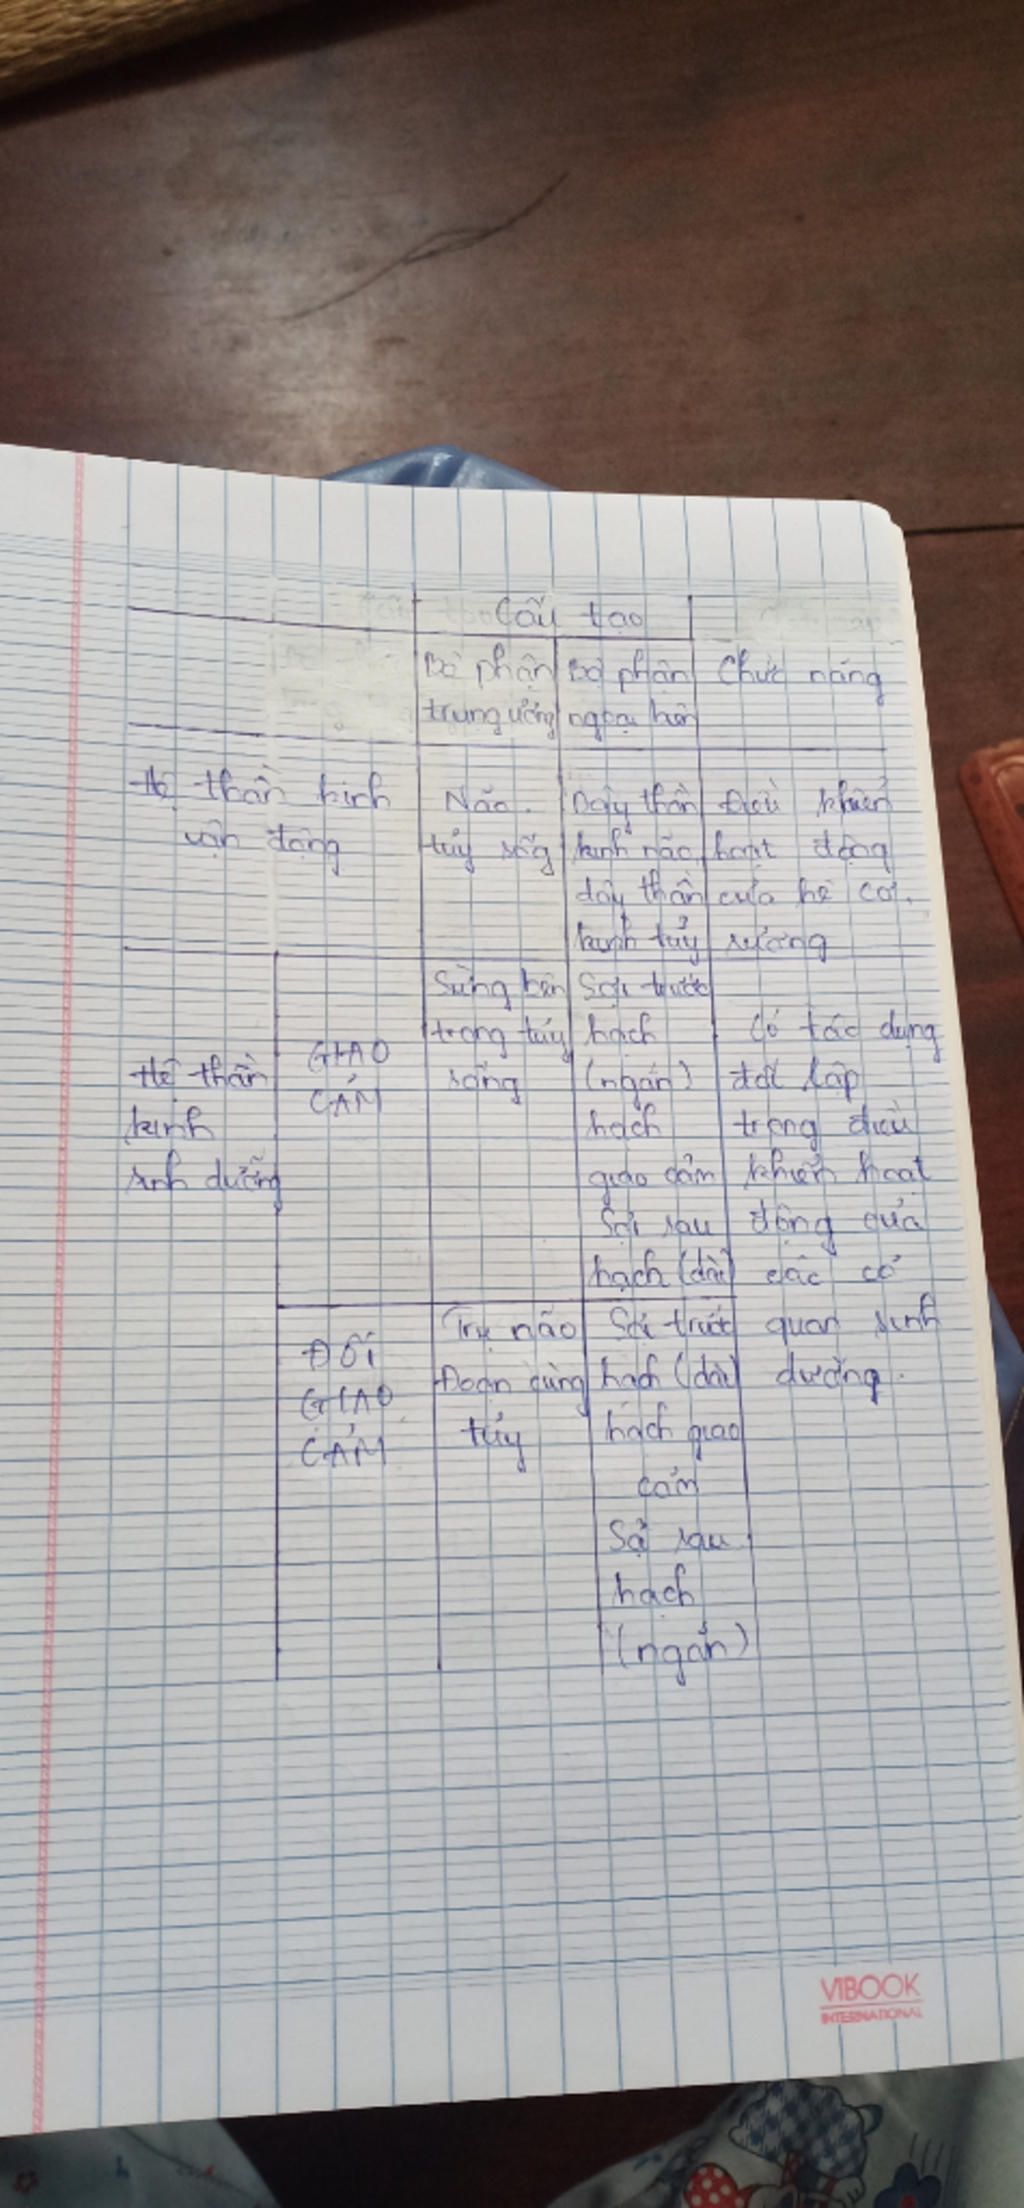 Cấu tạo
Bộ phận trung ương
Bộ phận ngoại biên
Chức năng
Hệ thần kinh
vận động
Não.
tủy sống
Dây thần
kinh não
dây thần
kinh tủy
Điều khiển
hoạt động
của hệ cơ.
xương
Hệ thần
kinh
sinh dưỡng
GIAO
CẢM
Sừng bên
trong tủy
sống
Sợi trước
hạch
(ngắn)
hạch
giao cảm
Sợi sau
hạch (dài)
Có tác dụng
đối lập
trong điều
khiển hoạt
động của
các cơ
quan sinh
dưỡng.
ĐỐI
GIAO
CẢM
Trụ não
Đoạn cùng
tủy
Sợi trước
hạch (dài)
hạch giao
cảm
Sợi sau
hạch
(ngắn)
VIBOOK
INTERNATIONAL